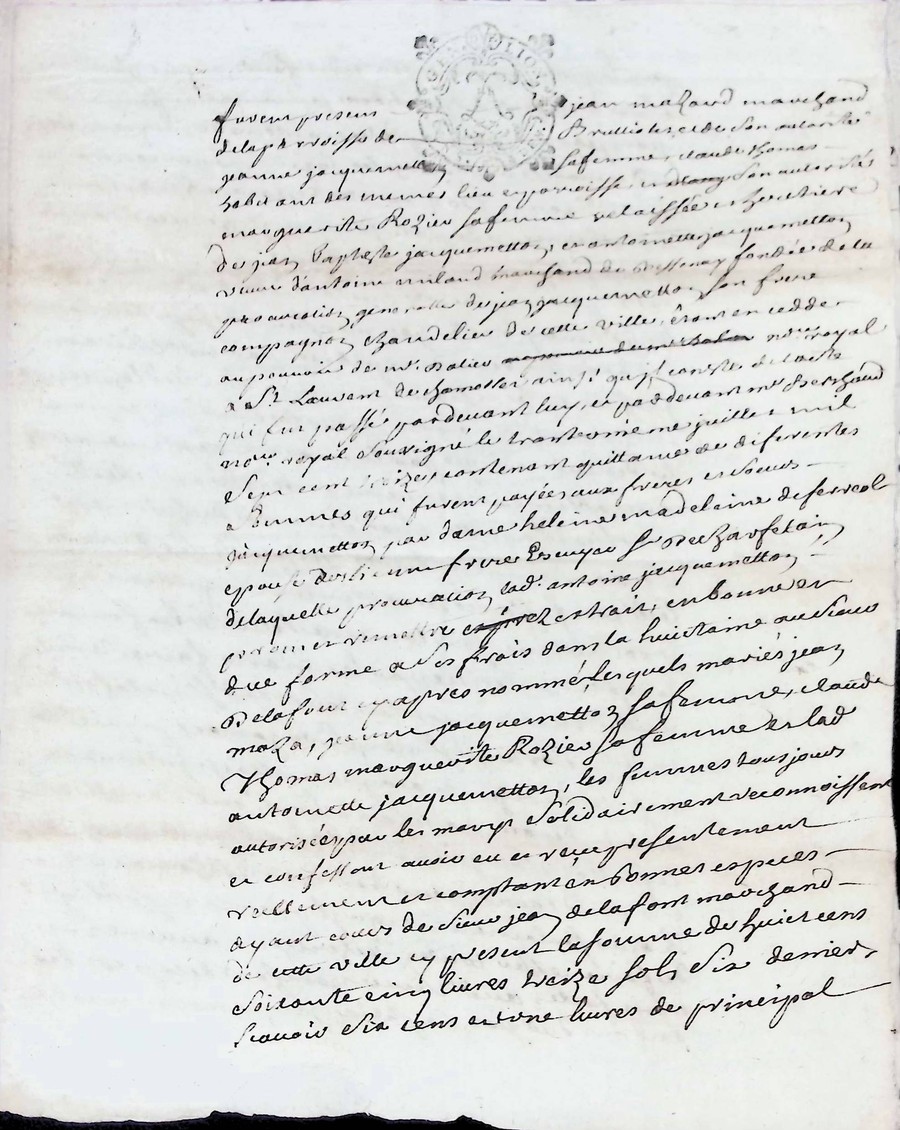 furent presens jean mazard marchand
de la parroisse de Bruttiolet et de son autorité
jeanne jacquemetton sa femme, claude thomas
habitant des memes lieu et paroisse et de son autorité
marguerite Rozier sa femme relaissée et heritiere
de jean Baptiste jacquemetton, et antoinette jacquemetton
veuve d'antoine milaud marchand de fondée de la
procuration generalle de jean jacquemetton son frere
compagnon chandelier de cette ville, étant en cedde
au pouvoir de mr. not.re royal
a St. Laurent de chamosset ainsi qu'il conste de l'acte
qui fut passé pardevant luy, et pardevant mr. Berthaud
no.re royal soussigné le trente unième juillet mil
sept cent treize, contenant quittance de diferentes
sommes qui furent payées aux freres et soeurs
jacquemetton par dame heleine madeleine de ferreol
epouse de etienne frere Escuyer Sr. De
de laquelle procuration lad. antoine jacquemetton
promet remettre extrait, en bonne et
due forme a ses frais dans la huictaine au sieur
Delafont cy apres nommé, lesquels mariés jean
maza, jeanne jacquemetton sa femme, claude
Thomas, marguerite Rozier sa femme et lad
antoinette jacquemetton, les femmes tousjours
autorisées par les marys solidairement reconnoissent
et confessent avoir eu et receu presentement
reellement et comptant en bonnes especes
ayant cours de sieur jean delafont marchand
de cette ville cy present la somme de huict cens
soixante cinq livres treize sols six deniers
scavoir six cens et une livres de principal